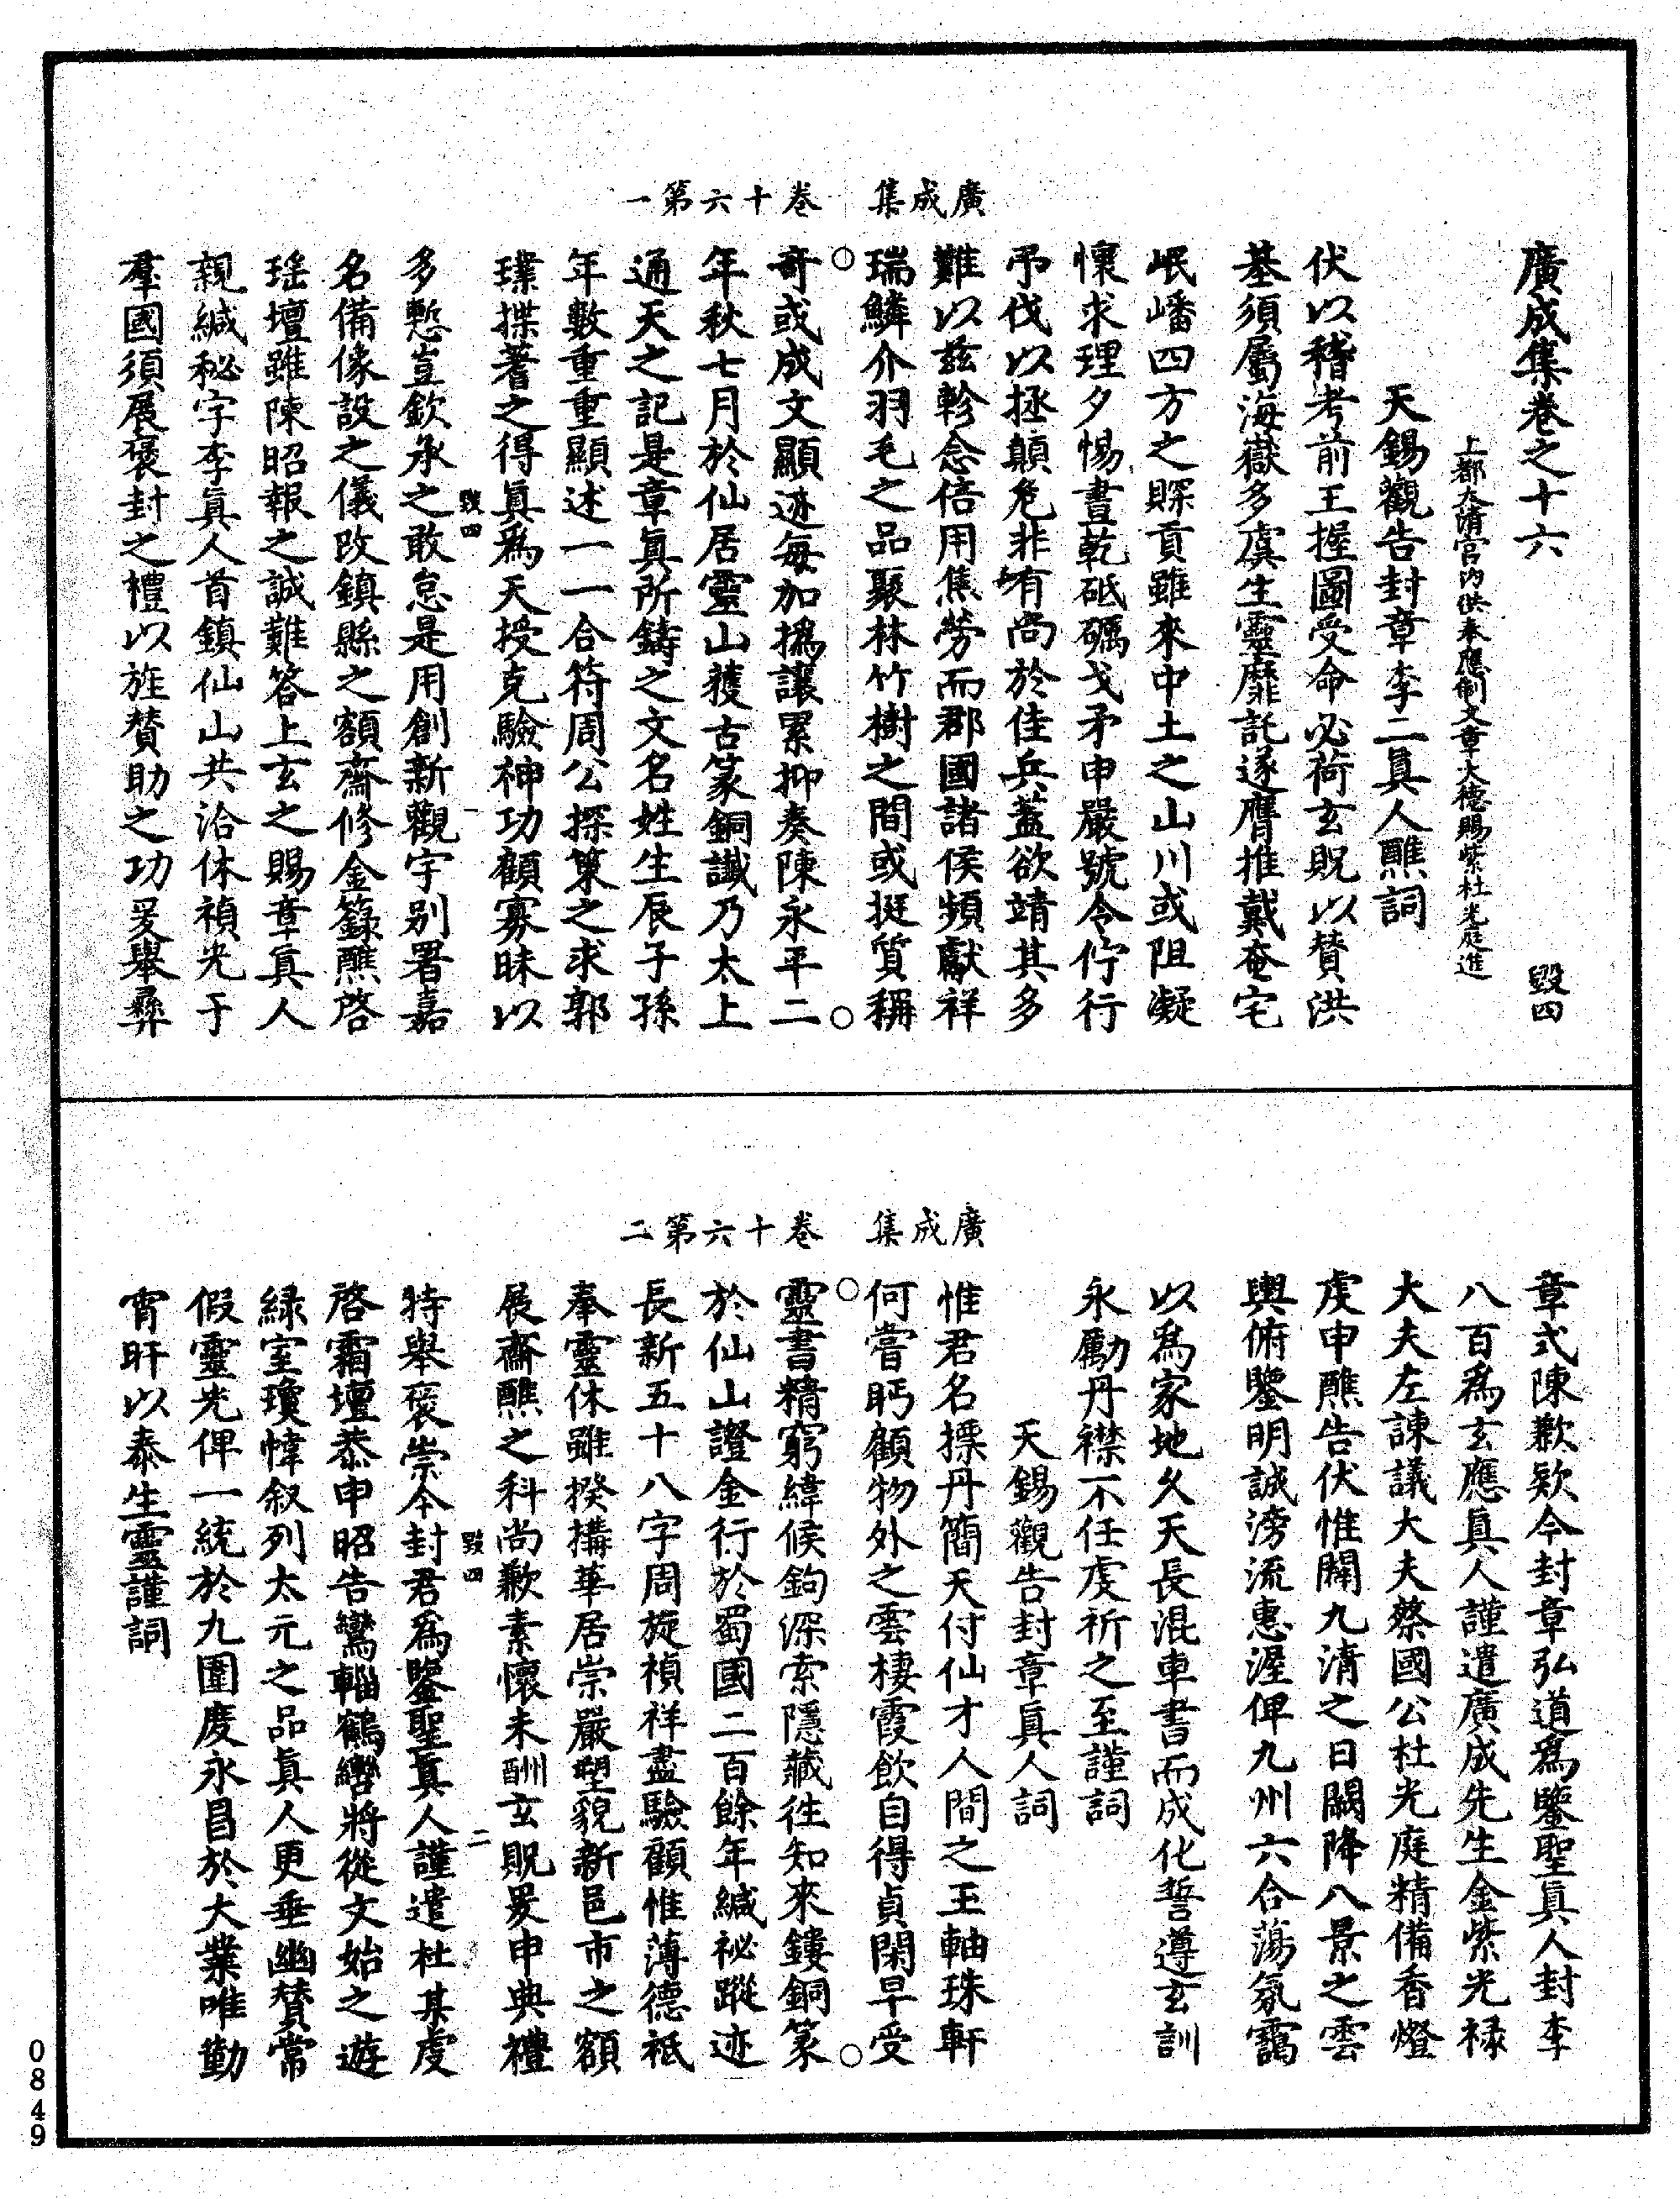 廣成集 卷十六第一
廣成集卷之十六 毀四
上都太清宮内供奉應制文章大德賜紫杜光庭進
天錫觀告封章李二眞人醮詞
伏以稽考前王握圖受命必荷玄貺以贊洪
基須屬海嶽多虞生靈靡託遂膺推戴奄宅
岷嶓四方之賝貢雖來中土之山川或阻凝
懷求理夕惕晝乾砥礪戈矛申嚴號令佇行
弔伐以拯顛危非有尚於佳兵蓋欲靖其多
難以兹軫念倍用焦勞而郡國諸侯頻獻祥
瑞鱗介羽毛之品聚林竹樹之間或挺質稱
奇或成文顯迹每加撝讓累抑奏陳永平二
年秋七月於仙居靈山獲古篆銅讖乃太上
通天之記是章眞所鑄之文名姓生辰子孫
年數重重顯述一一合符周公探策之求郭
璞揲蓍之得眞爲天授克驗神功顧寡昧以
毀四 一
多慙豈欽承之敢怠是用創新觀宇别署嘉
名備像設之儀改鎮縣之額齋修金籙醮啓
瑶壇雖陳昭報之誠難答上玄之賜章眞人
親緘秘字李眞人首鎮仙山共洽休禎光于
羣國須展褒封之禮以旌贊助之功爰舉彞
廣成集 卷十六第二
章式陳歉欵今封章弘道爲鑒聖眞人封李
八百爲玄應眞人謹遣廣成先生金紫光禄
大夫左諫議大夫蔡國公杜光庭精備香燈
虔申醮告伏惟闢九清之日闕降八景之雲
輿俯鑒明誠滂流惠渥俾九州六合蕩氛靄
以爲家地久天長混車書而成化誓遵玄訓
永勵丹襟不任虔祈之至謹詞
天錫觀告封章眞人詞
惟君名摽丹簡天付仙才人間之玉軸珠軒
何嘗眄顧物外之雲棲霞飲自得貞閑早受
靈書精窮緯候鉤深索隱藏徃知來鏤銅篆
於仙山證金行於蜀國二百餘年緘祕蹤迹
長新五十八字周旋禎祥盡驗顧惟薄德祗
奉靈休雖揆搆華居崇嚴塑貌新邑市之額
展齋醮之科尚歉素懷未酬玄貺爰申典禮
毀四 二
特舉褒崇今封君爲鑒聖眞人謹遣杜某虔
啓霜壇恭申昭告鸞輜鶴轡將從文始之遊
緑室瓊幃叙列太元之品眞人更垂幽贊常
假靈光俾一統於九圍慶永昌於大業唯勤
宵旰以泰生靈謹詞
0849